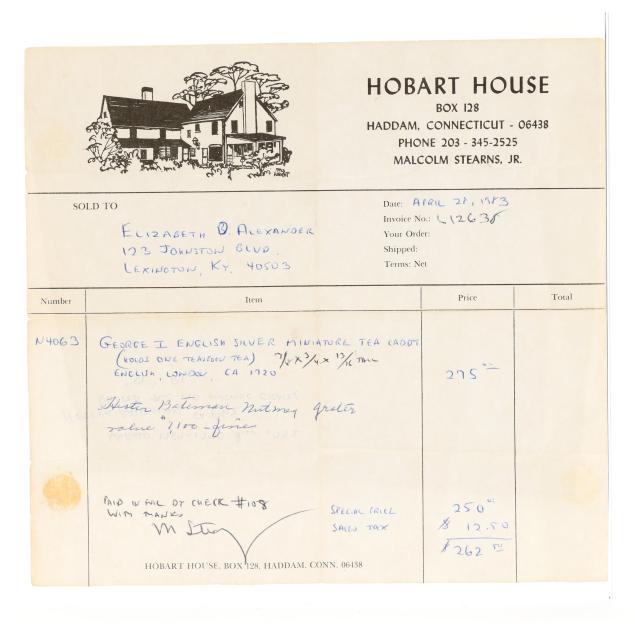 HOBART HOUSE
BOX 128
HADDAM, CONNECTICUT - 06438
PHONE 203 - 345-2525
MALCOLM STEARNS, JR.
SOLD TO
ELIZABETH D. ALEXANDER
123 JOHNSTON BLVD.
LEXINGTON, KY. 40503
Date: APRIL 28, 1983
Invoice No.: L12638
Your Order:
Shipped:
Terms: Net
Number Item Price Total
N4063 GEORGE I ENGLISH SILVER MINIATURE TEA CADDY
(HOLDS ONE TEASPOON TEA) 7/8 x 3/4 x 13/16 TALL
ENGLISH, LONDON, CA 1720 275
Hester Bateman Nutmeg grater
value $1,100 - fine
PAID IN FULL BY CHECK #108
WITH THANKS
M Stearns
SPECIAL PRICE 250
SALES TAX $ 12.50
$ 262 50
HOBART HOUSE, BOX 128, HADDAM, CONN. 06438